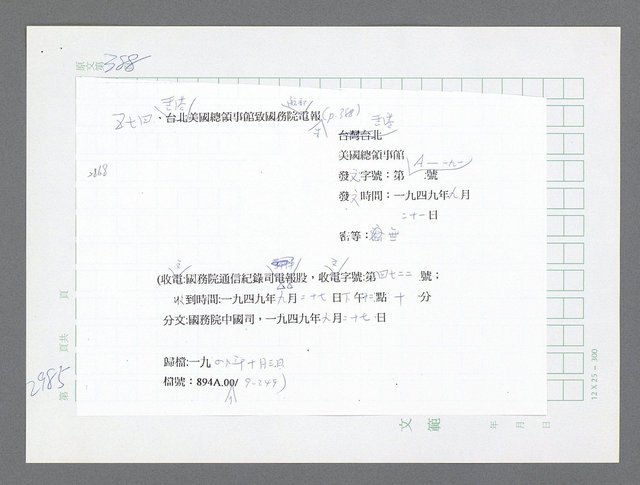 原文第388
香港
五七四、台北美國總領事館致國務院電報(p.388)
香港
台灣台北
美國總領事館
A—一九一
發文字號：第 號
2868
發文時間：一九四九年九月
二十一日
密等：
(收電:國務院通信紀錄司電報股，收電字號:第四七二二 號；
收到時間:一九四九年九月二十七日下午 點十 分
分文:國務院中國司，一九四九年九月二十七日
歸檔:一九四九年十月三日
檔號：894A.00/ 9-249)
第 頁共 頁
2985
12 X 25 － 300
文範
年 月 日